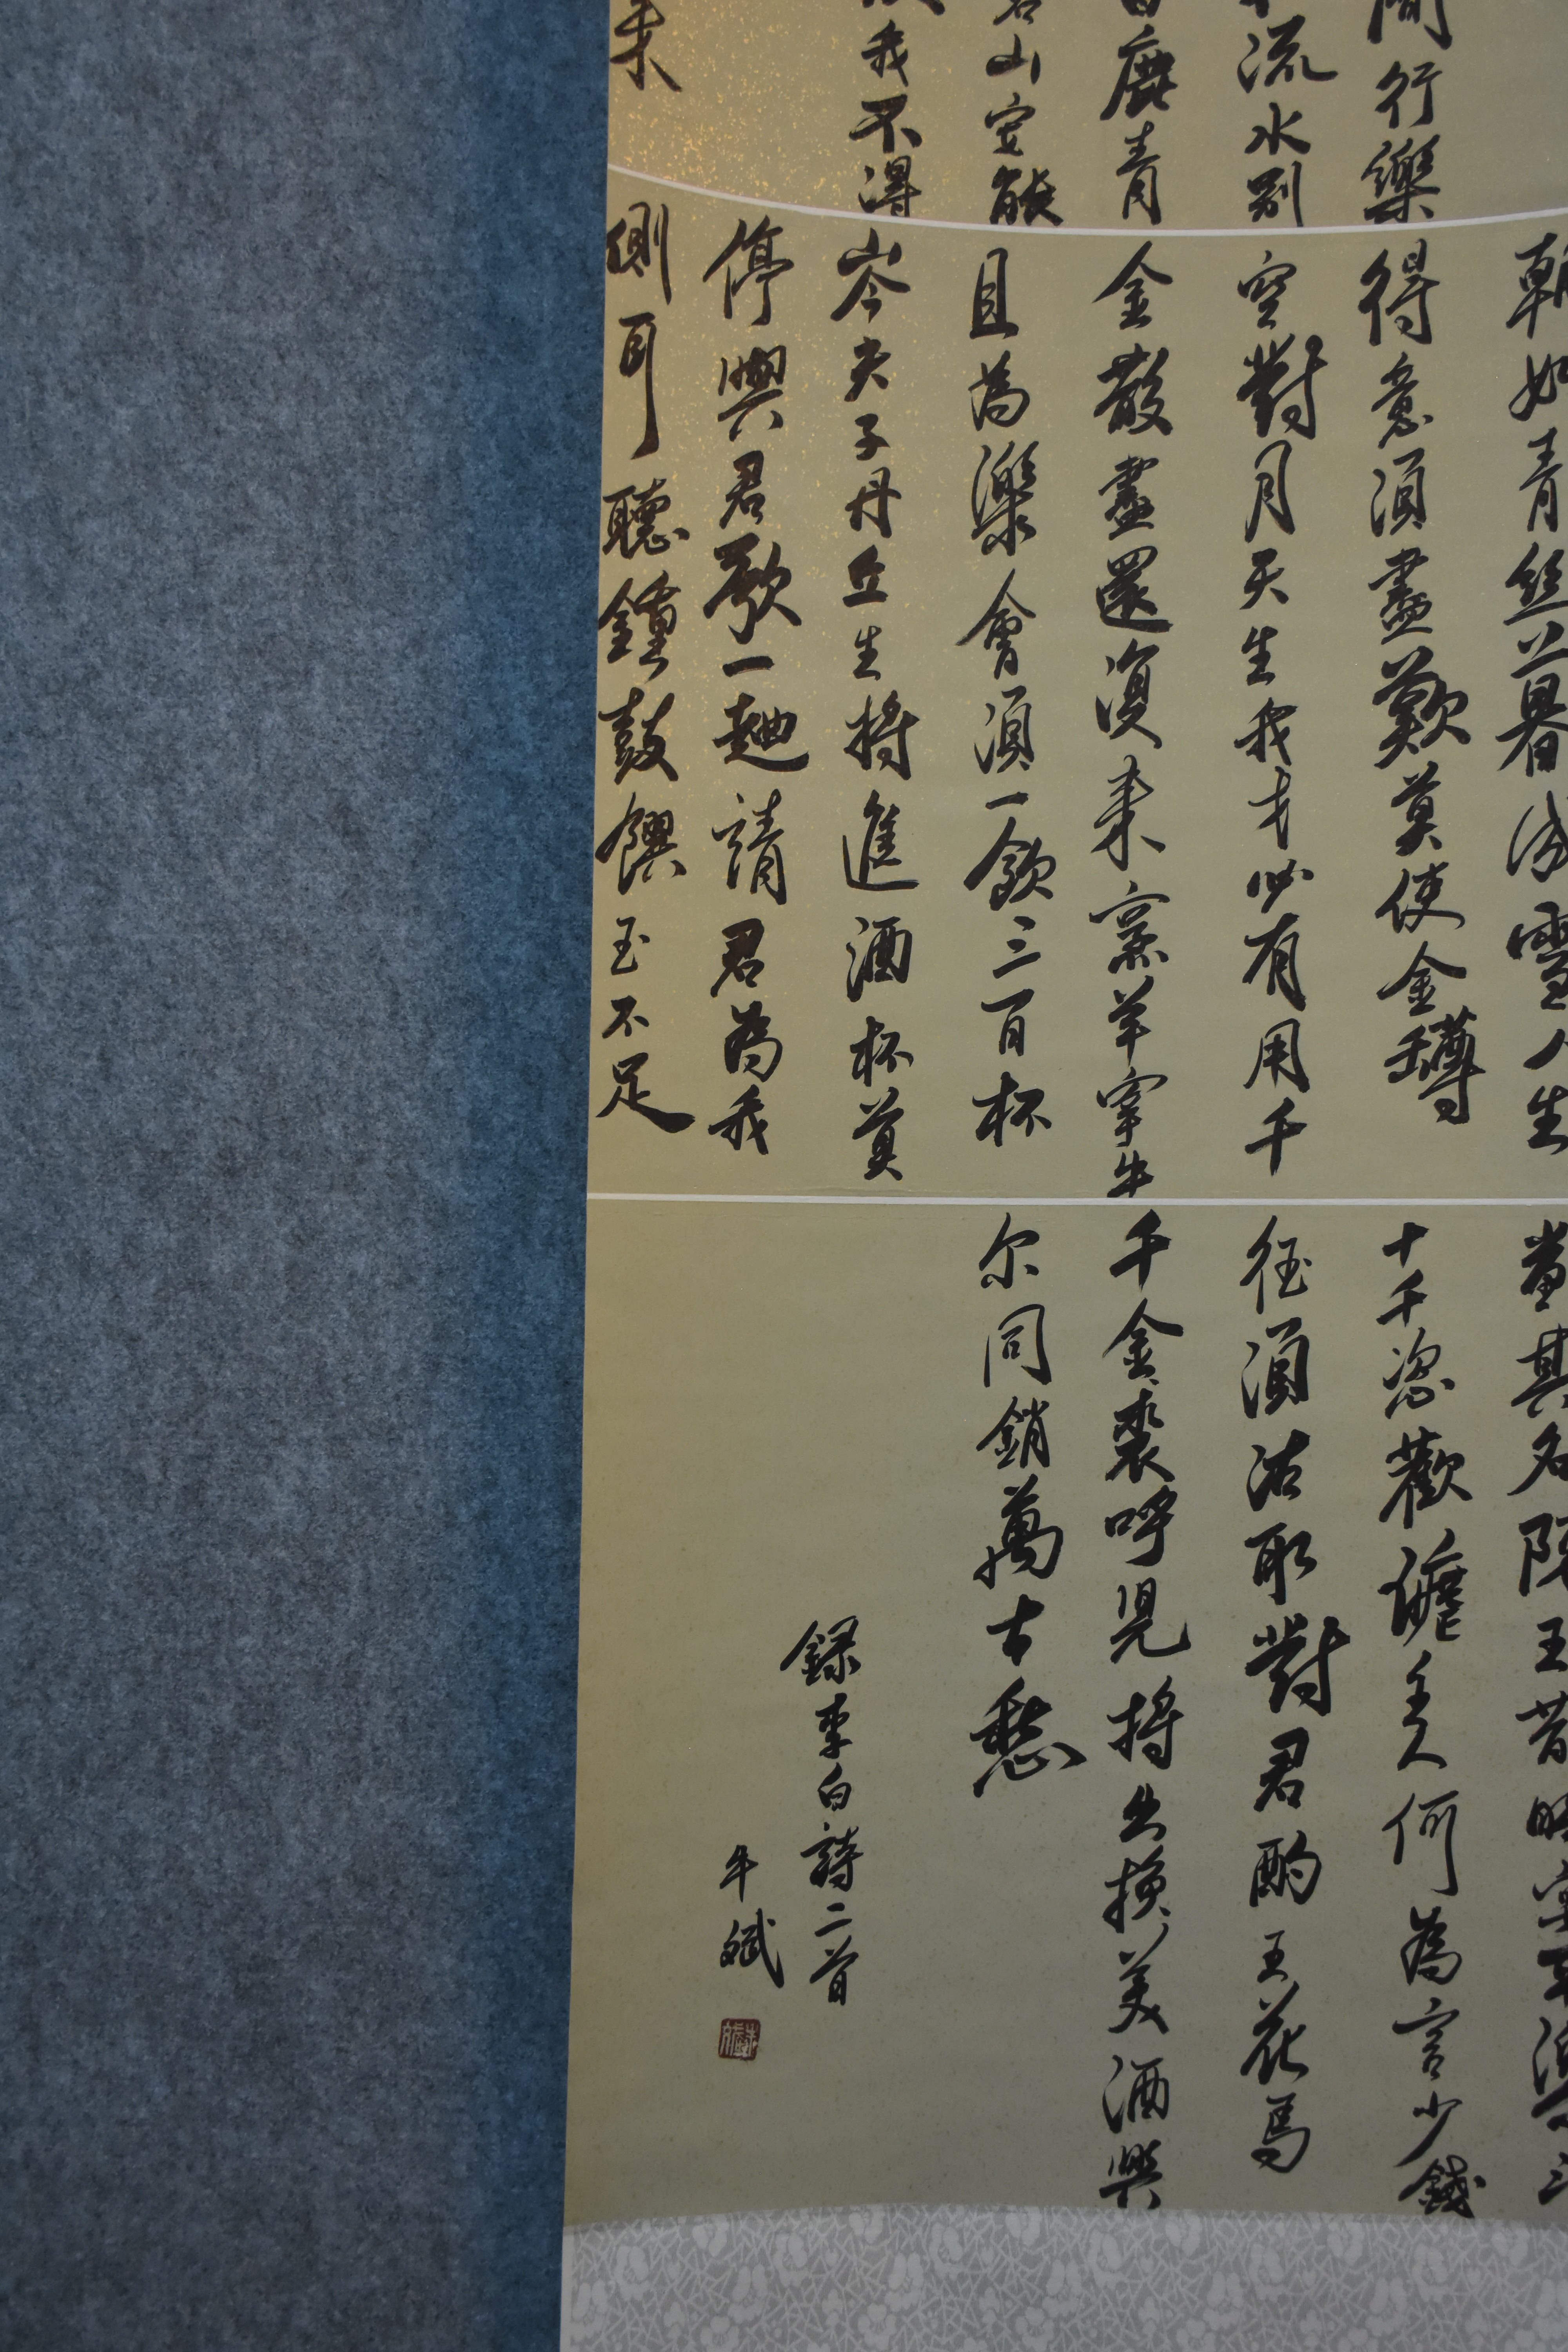 間行樂
流水別
鹿青
山安能
我不得
来
朝如青絲暮成雪人生
得意須盡歡莫使金罇
空對月天生我才必有用千
金散盡還復来烹羊宰牛
且為樂會須一飲三百杯
岑夫子丹丘生將進酒杯莫
停與君歌一麯請君為我
側耳聽鍾鼓饌玉不足
留其名陳王昔時宴平樂
十千恣歡謔主人何為言少錢
徑須沽取對君酌五花馬
千金裘呼兒將出換美酒與
尔同銷萬古愁
録李白詩二首
牛斌